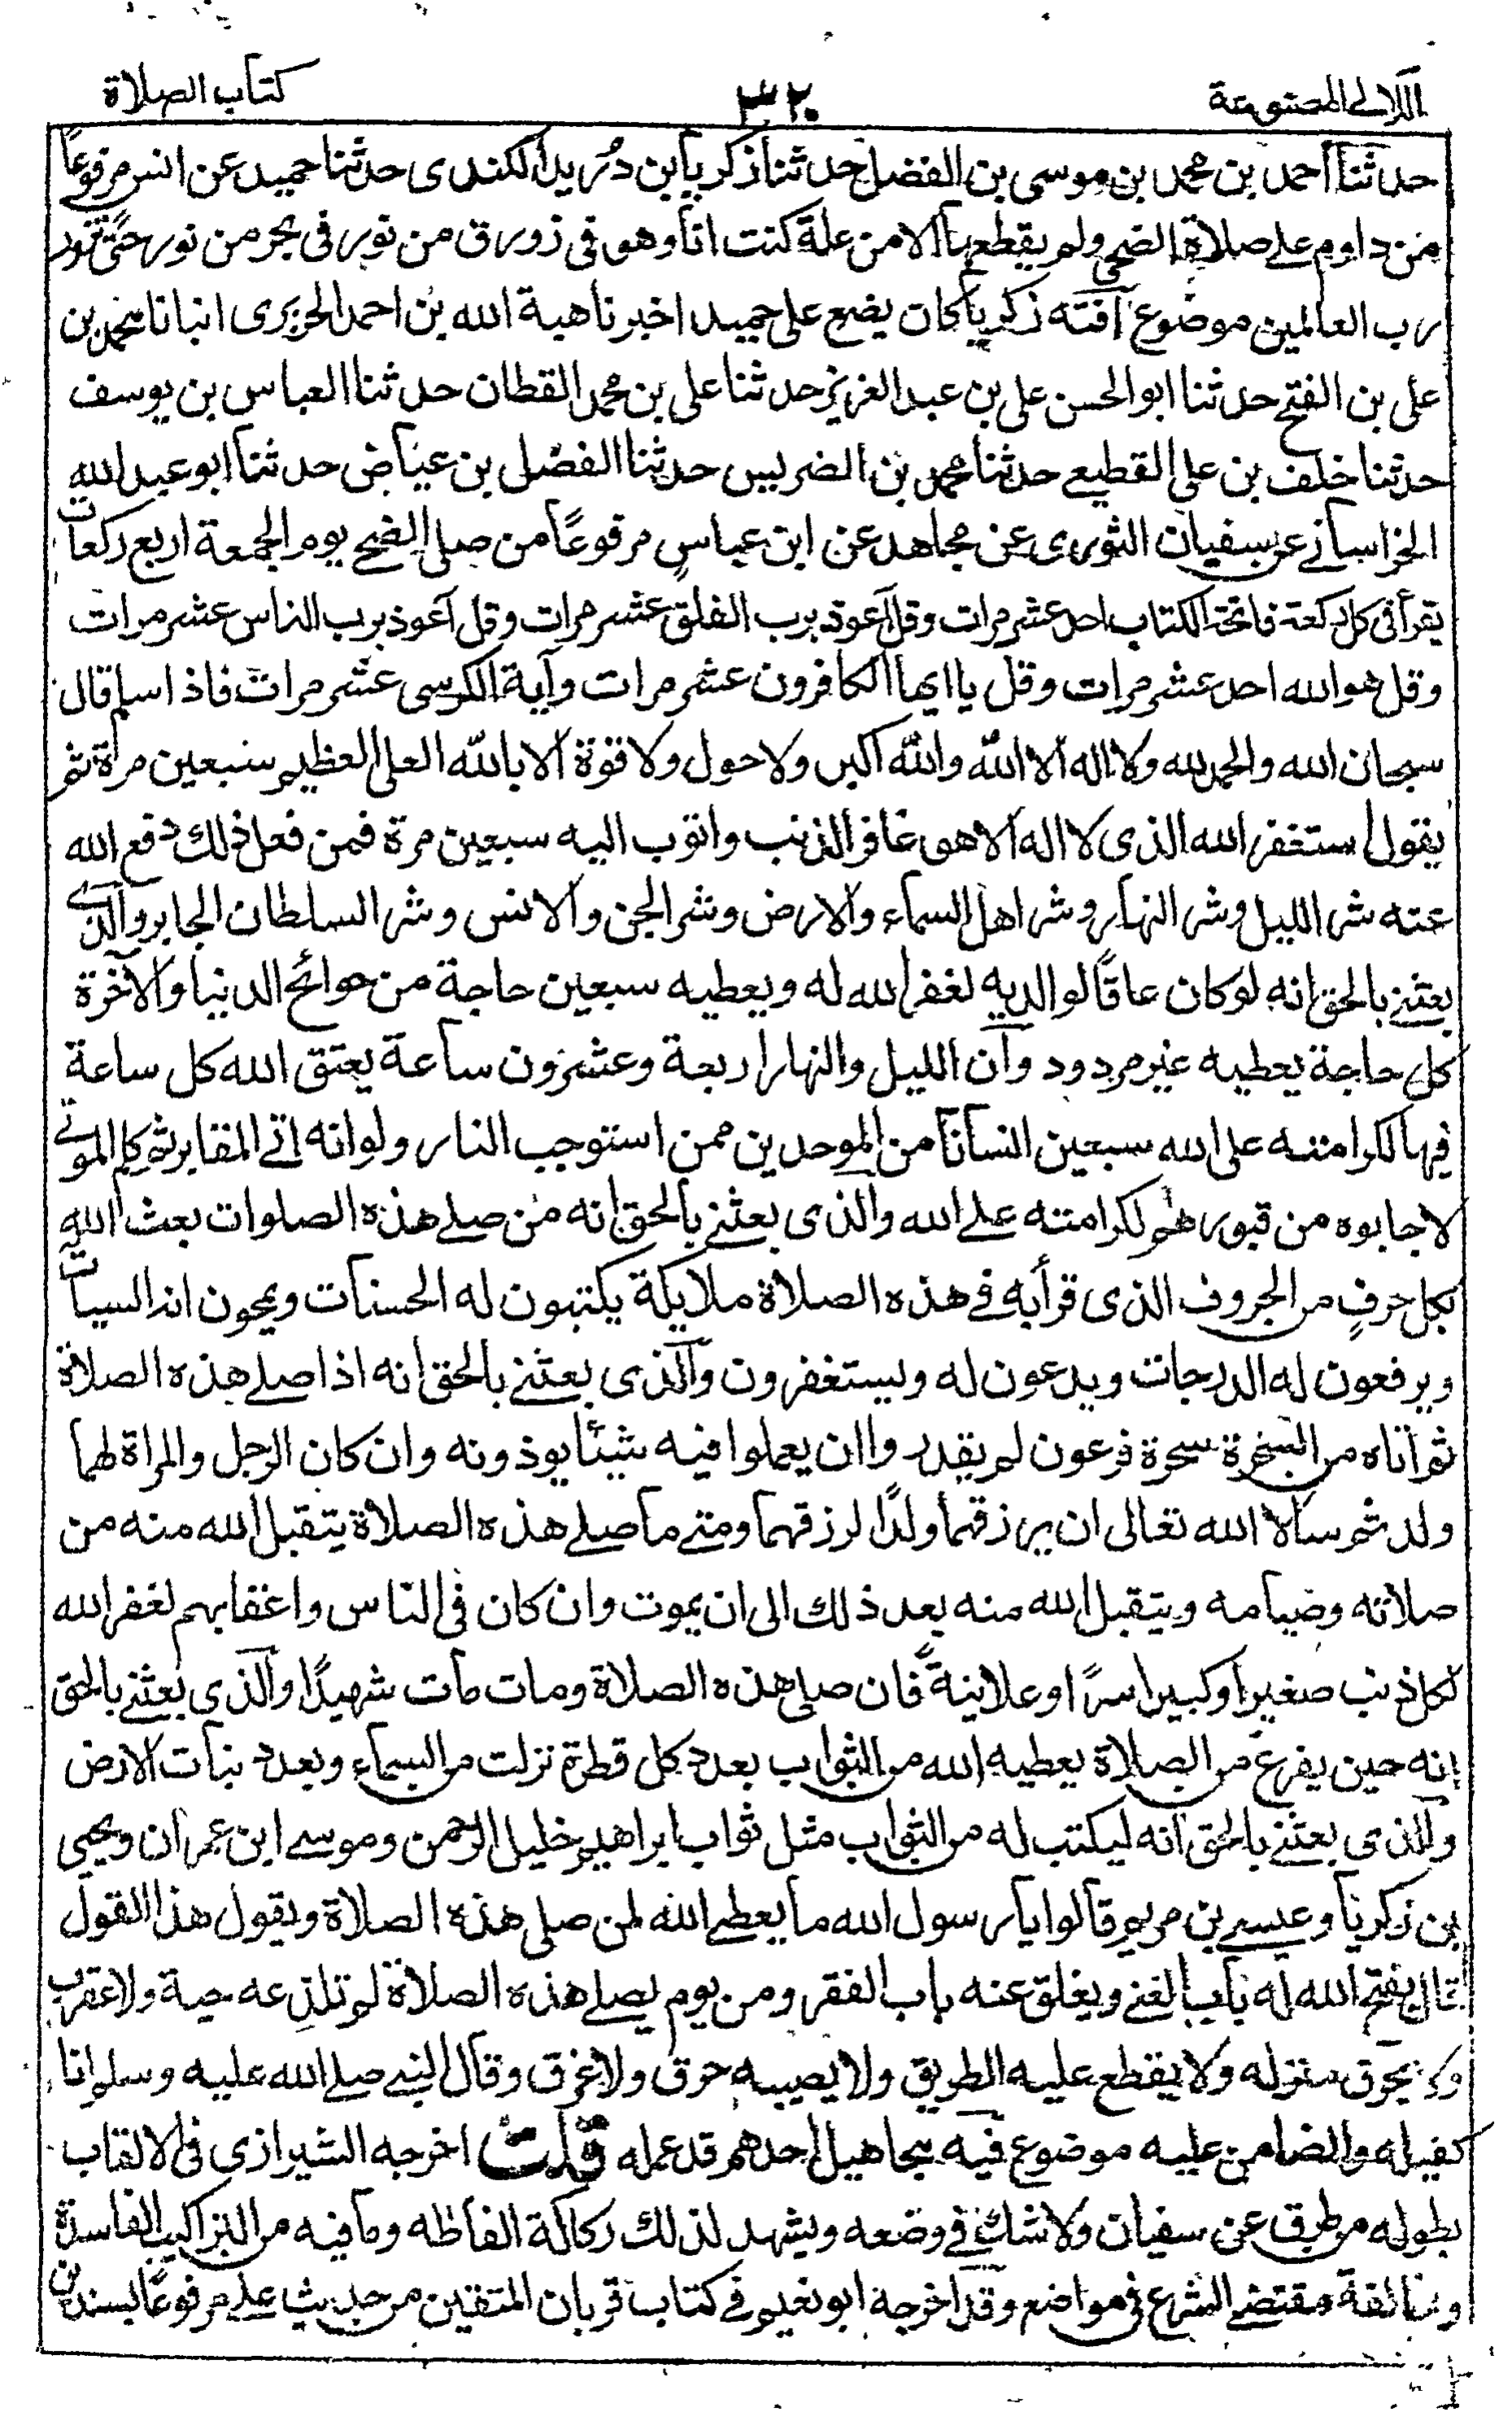 اللآلى المصنوعة
٣٢٠
كتاب الصلاة
حدثنا أحمد بن محمد بن موسى بن الفضل حدثنا زكريا بن دُريد الكندى حدثنا حميد عن انس مرفوعاً
من داوم على صلاة الضحى ولم يقطعها الا من علة كنت انا وهو فى زورق من نور فى بحر من نور حتى تزور
رب العالمين موضوع آفته زكريا كان يضع على حميد اخبرنا هبة الله بن احمد الحريرى انبانا محمد بن
على بن الفتح حدثنا ابو الحسن على بن عبد العزيز حدثنا على بن محمد القطان حدثنا العباس بن يوسف
حدثنا خلف بن على القطيعى حدثنا محمد بن الضريس حدثنا الفضل بن عياض حدثنا ابو عبد الله
الخراسانى عن سفيان الثورى عن مجاهد عن ابن عباسٍ مرفوعاً من صلى الضحى يوم الجمعة اربع ركعات
يقرأ فى كل ركعة فاتحة الكتاب احد عشر مرات وقل أعوذ برب الفلق عشر مرات وقل أعوذ برب الناس عشر مرات
وقل هو الله احد عشر مرات وقل يا ايها الكافرون عشر مرات وآية الكرسى عشر مرات فاذا سلم قال
سبحان الله والحمد لله ولا اله الا الله والله اكبر ولا حول ولا قوة الا بالله العلى العظيم سبعين مرة ثم
يقول استغفر الله الذى لا اله الا هو غافر الذنب واتوب اليه سبعين مرة فمن فعل ذلك دفع الله
عنه شر الليل وشر النهار وشر اهل السماء والارض وشر الجن والانس وشر السلطان الجابر والذى
بعثنى بالحق انه لو كان عاقًا لوالديه لغفر الله له ويعطيه سبعين حاجة من حوائج الدنيا والآخرة
كل حاجة يعطيه غير مردود وان الليل والنهار اربعة وعشرون ساعة يعتق الله كل ساعة
فيها لكرامته على الله سبعين انسانا من الموحدين ممن استوجب النار ولو انه اتى المقابر ثم كلم الموتى
لاجابوه من قبورهم لكرامته على الله والذى بعثنى بالحق انه من صلى هذه الصلوات بعث الله
بكل حرفٍ من الحروف الذى قرأ به فى هذه الصلاة ملايكة يكتبون له الحسنات ويمحون انه السيات
ويرفعون له الدرجات ويدعون له ويستغفرون والذى بعثنى بالحق انه اذا صلى هذه الصلاة
ثم اتاه من السخرة سحرة فرعون لم يقدروا ان يعملوا فيه شيئًا يوذونه وان كان الرجل والمراة لهما
ولد ثم سألا الله تعالى ان يرزقهما ولدًا لرزقهما ومتى ما صلى هذه الصلاة يتقبل الله منه من
صلاته وصيامه ويتقبل الله منه بعد ذلك الى ان يموت وان كان فى الناس واعقابهم لغفر الله
لكل ذنب صغيرا وكبيرا سرًا او علانيةً فان صلى هذه الصلاة ومات مات شهيدًا والذى بعثنى بالحق
انه حين يفرغ من الصلاة يعطيه الله من الثواب بعدد كل قطرة نزلت من السماء وبعدد نبات الارض
والذى بعثنى بالحق انه ليكتب له من الثواب مثل ثواب ابراهيم خليل الرحمن وموسى ابن عمران ويحيى
بن زكريا وعيسى بن مريم قالوا يا رسول الله ما يعطى الله لمن صلى هذه الصلاة ويقول هذا القول
قال يفتح الله له باب الغنى ويغلق عنه باب الفقر ومن يوم يصلى هذه الصلاة لم تلذعه حية ولا عقرب
ولا يحرق منزله ولا يقطع عليه الطريق ولا يصيبه حرق ولا غرق وقال النبى صلى الله عليه وسلم انا
كفيله والضامن عليه موضوع فيه مجاهيل احدهم قد عمله قلت اخرجه الشيرازى فى الالقاب
بطوله من طرق عن سفيان ولا شك فى وضعه ويشهد لذلك ركاكة الفاظه وما فيه من التراكيب الفاسدة
ومخالفة مقتضى الشرع فى مواضع وقد اخرجه ابو نعيم فى كتاب قربان المتقين من حديث على مرفوعًا بسند بن